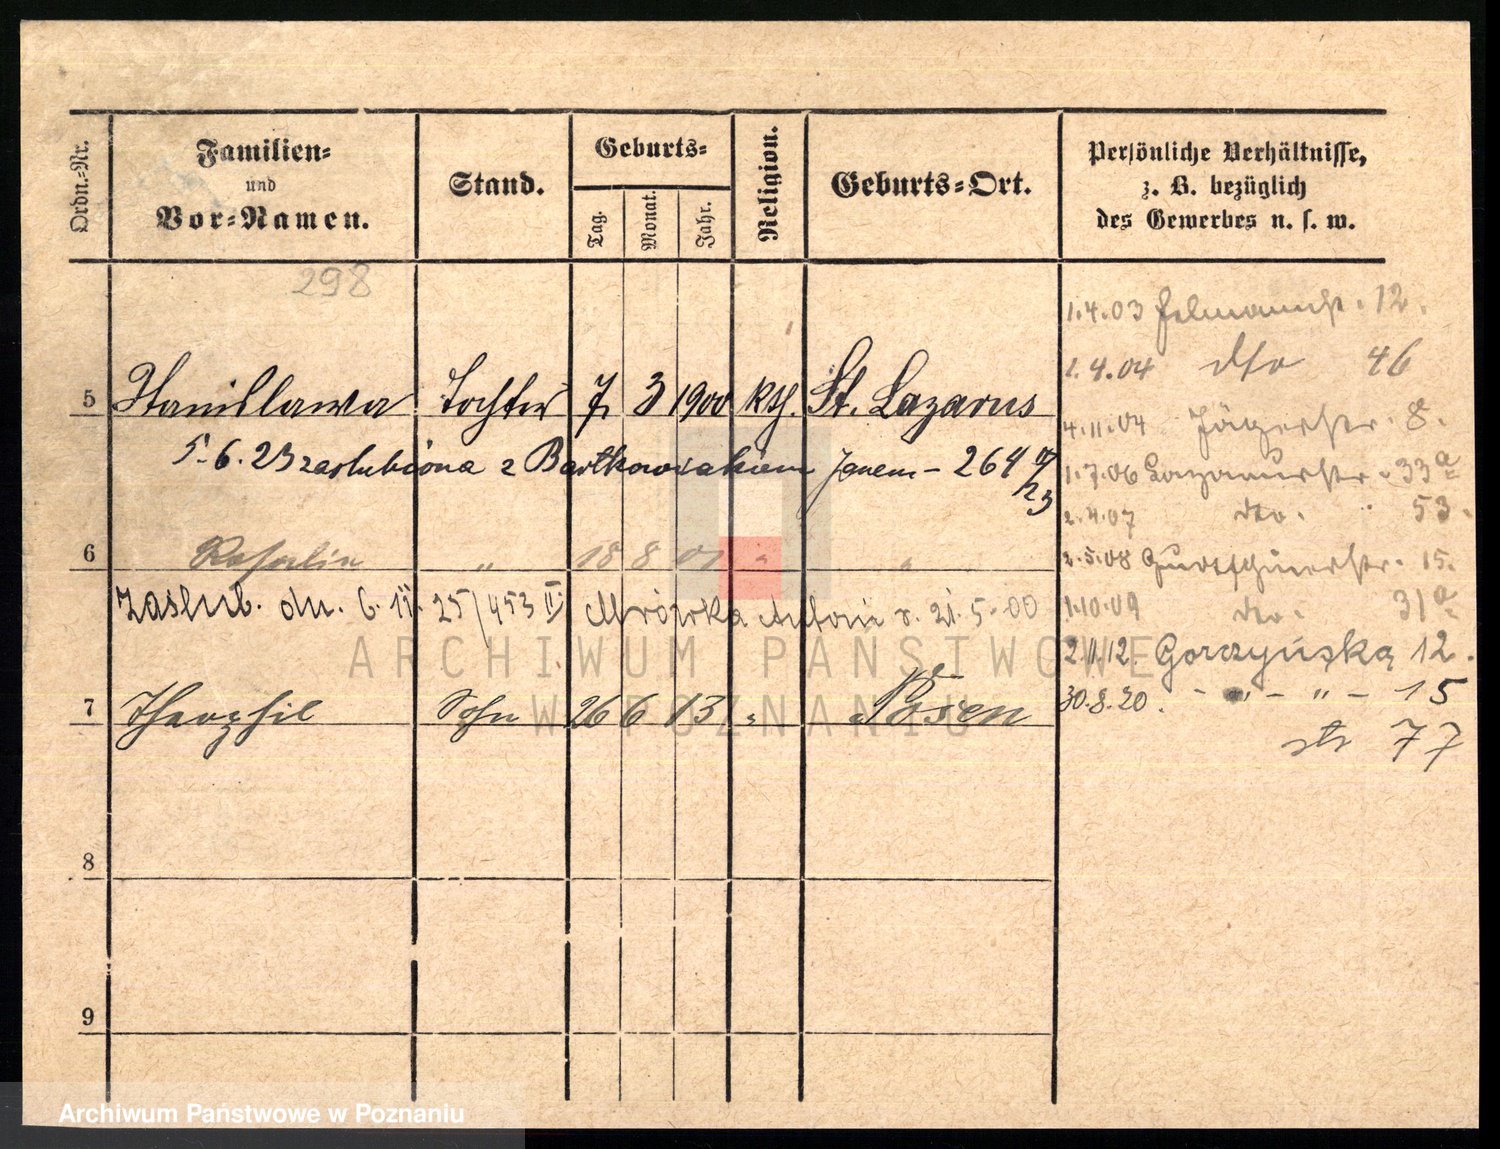 Ordn.-Nr.
Familien-
und
Vor-Namen.
Stand.
Geburts-
Tag.
Monat.
Jahr.
Religion.
Geburts-Ort.
Persönliche Verhältnisse,
z. B. bezüglich
des Gewerbes u. s. w.
298
5 Stanislawa Tochter 7 3 1900 kth. St. Lazarus
5.6.23 zaślubiona z Bartkowiakiem Janem - 264
6 Rosalia " 18 8 01 " "
zaślub. dn. 6.11.25/453 II Mrówka Antoni 21.5.00
7 Theophil Sohn 26 6 13 " Posen
8
9
1.4.03 12.
1.4.04 dto 46
4.11.04 Jägerstr. 8.
1.7.06 Lazarusstr. 33a
2.4.07 dto. 53.
2.5.08 Gurtschinerstr. 15.
1.10.09 dto. 31a
2.11.12. Gorczyńska 12.
30.8.20. - " - " - 15
77
ARCHIWUM PAŃSTWOWE
W POZNANIU
Archiwum Państwowe w Poznaniu